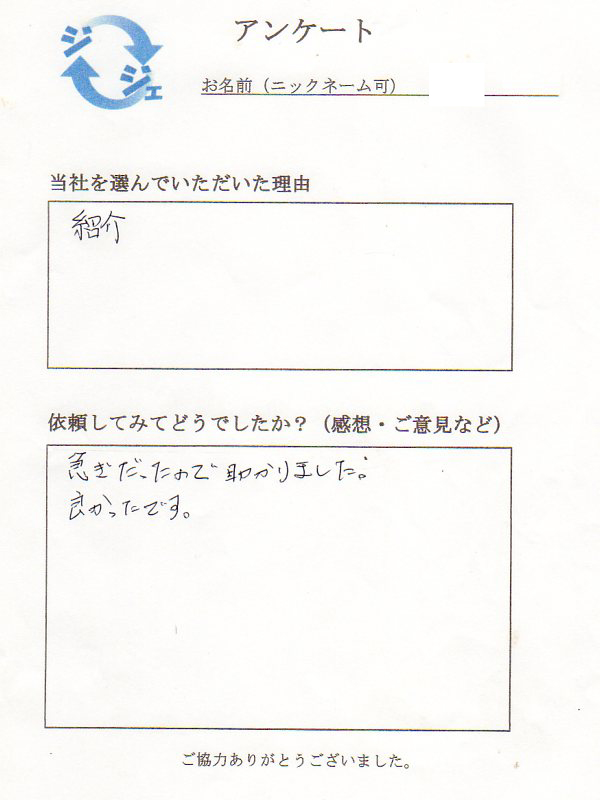 アンケート
ジジェ
お名前（ニックネーム可）
当社を選んでいただいた理由
紹介
依頼してみてどうでしたか？（感想・ご意見など）
急ぎだったので助かりました。
良かったです。
ご協力ありがとうございました。